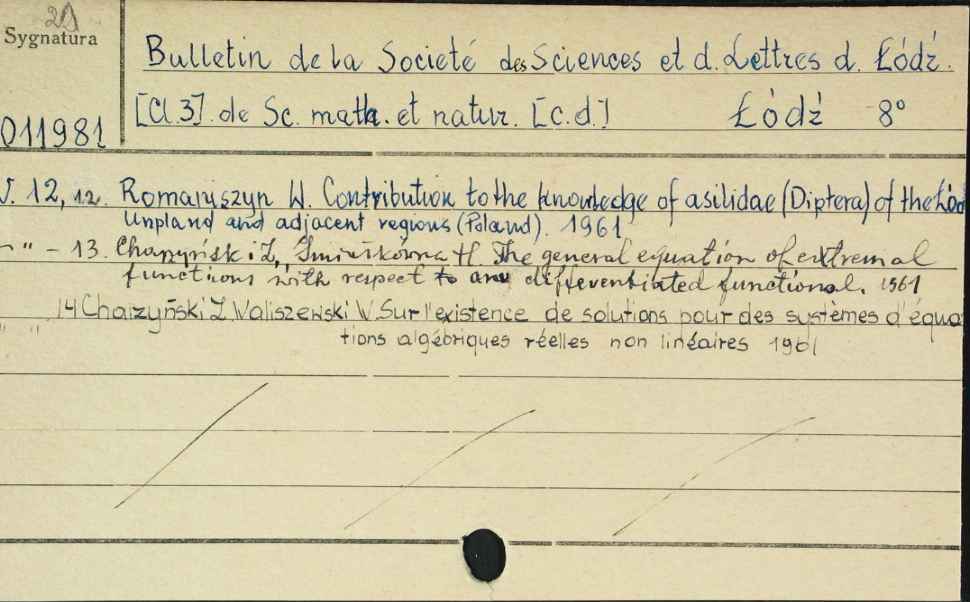 29
Sygnatura
011981
Bulletin de la Société des Sciences et d. Lettres d. Łódź.
[Cl. 3]. de Sc. math. et natur. [c.d.] Łódź 8°
V. 12, 12. Romaniszyn W. Contribution to the knowledge of asilidae (Diptera) of the Łód
Unpland and adjacent regions (Poland). 1961
- " - 13. Charzyński Z, Śmiałkówna H. The general equation of extremal
functions with respect to any differentiated functional. 1961
" " 14 Charzyński Z. Waliszewski W. Sur l'existence de solutions pour des systèmes d'équa
tions algébriques réelles non linéaires 1961